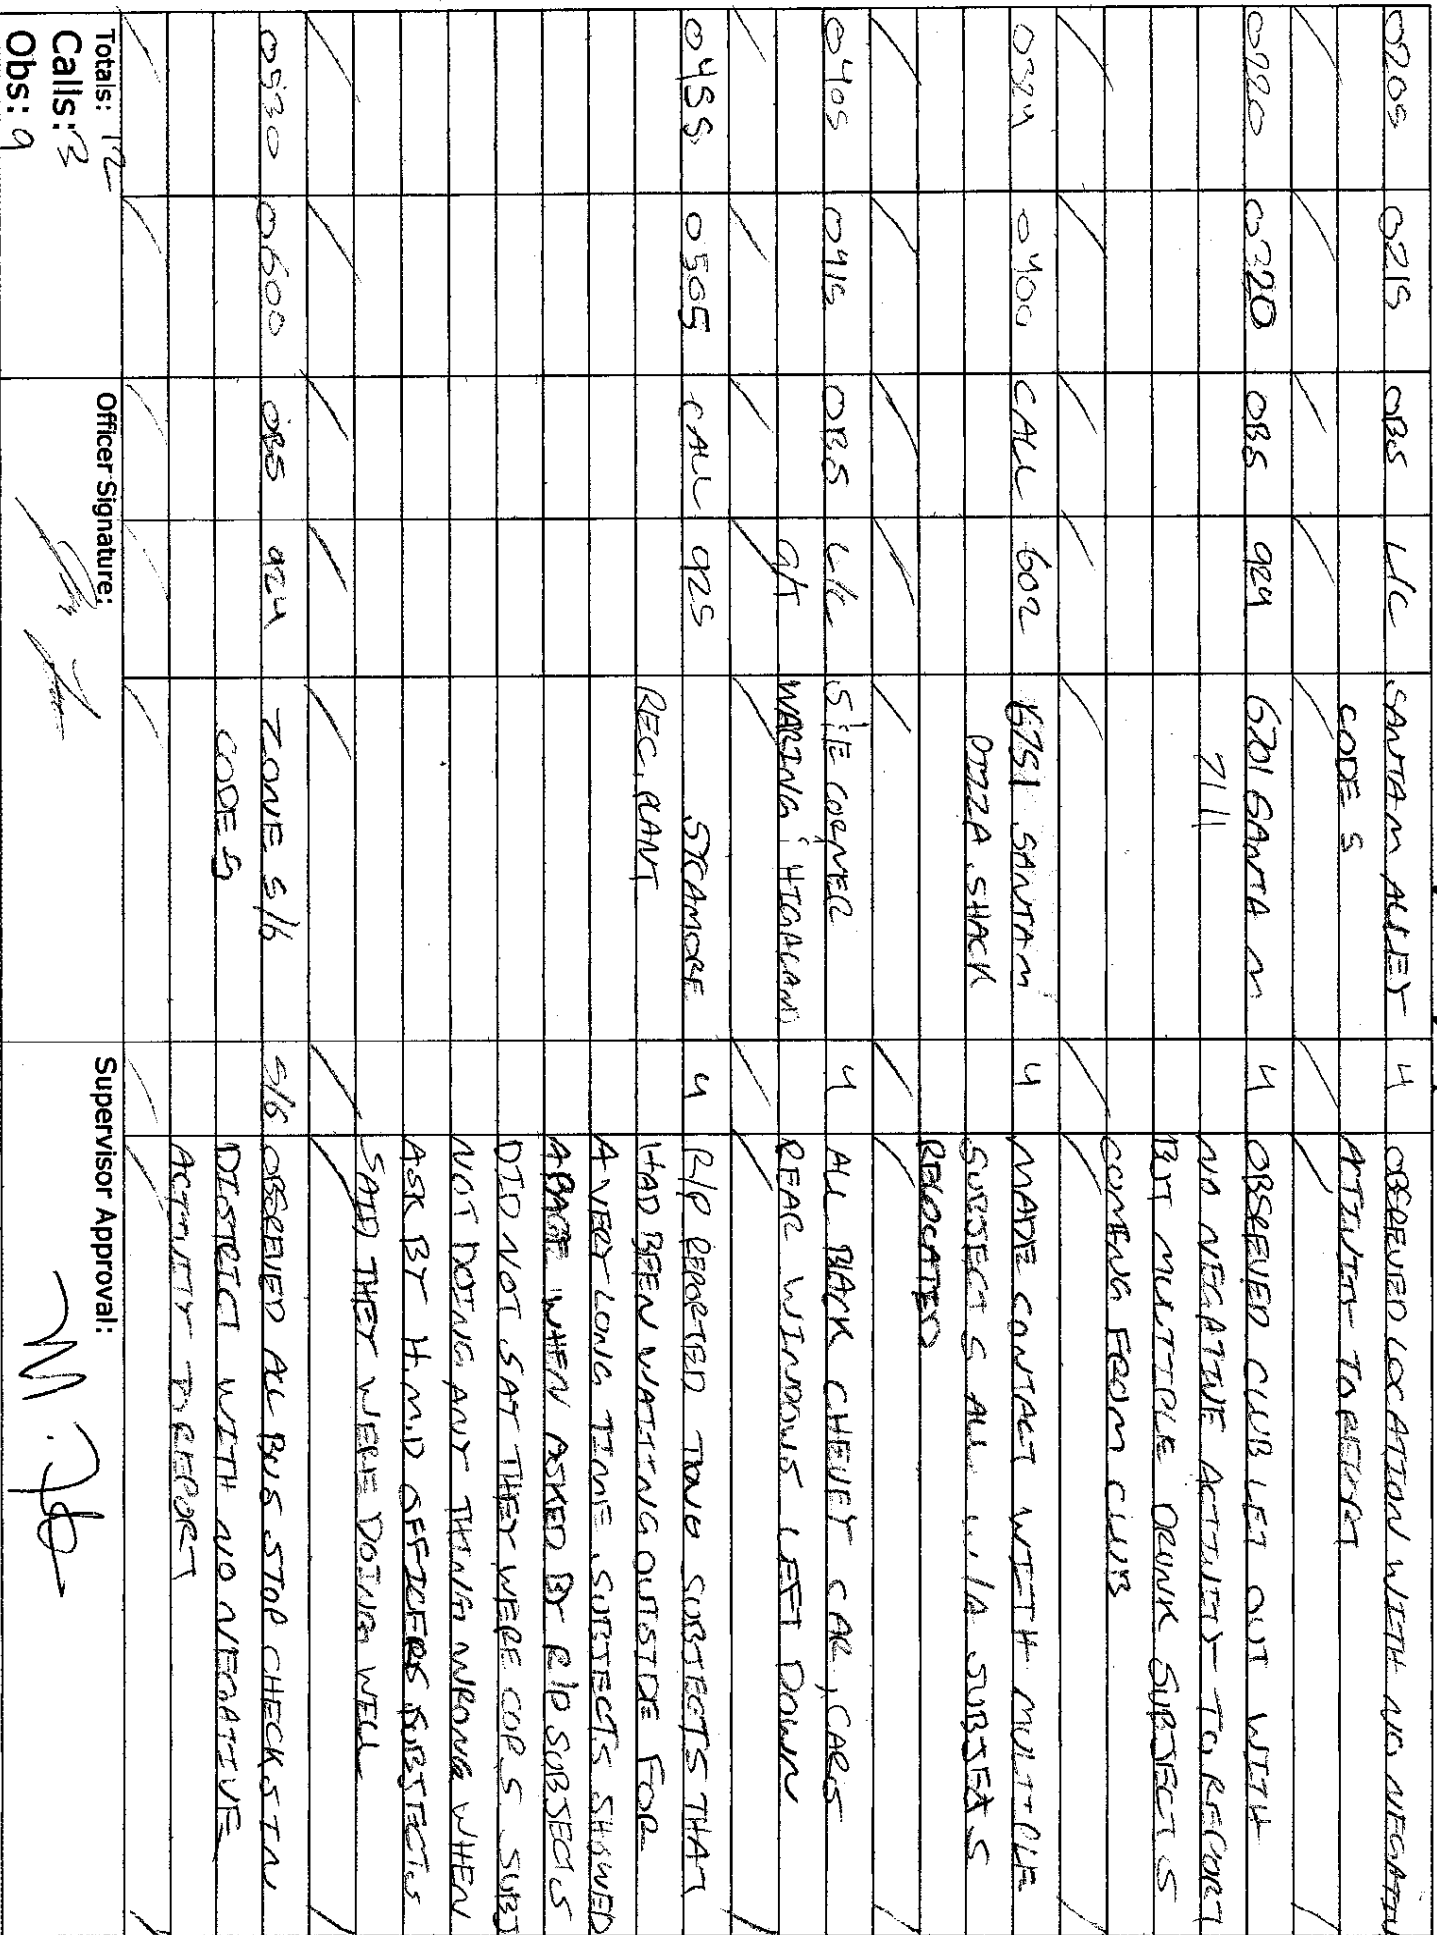 0205 0215 OBS L/C SANTA M ALLEY 4 OBSERVED LOCATION WITH NO NEGATIV
CODE 5 ACTIVITY TO REPORT
0220 0320 OBS 924 6201 SANTA M 4 OBSERVED CLUB LET OUT WITH
7111 NO NEGATIVE ACTIVITY TO REPORT
BUT MULTIPLE DRUNK SUBJECTS
COMING FROM CLUB
0324 0400 CALL 602 6751 SANTA M 4 MADE CONTACT WITH MULTIPLE
PIZZA SHACK SUBJECTS ALL W/A SUBJEXTS
RELOCATED
0405 0415 OBS L/C S/E CORNER 4 ALL BLACK CHEVEY CAR, CARS
G/T WARING / HIGHLAND REAR WINDOWS LEFT DOWN
0455 0505 CALL 925 SYCAMORE 4 R/P REPORTED TWO SUBJECTS THAT
REC. PLANT HAD BEEN WAITING OUTSIDE FOR
A VERY LONG TIME, SUBJECTS SHOWED
A BAGE WHEN ASKED BY R/P SUBJECTS
DID NOT SAT THEY WERE COPS. SUBJ
NOT DOING ANY THING WRONG WHEN
ASK BY H.M.D OFFICERS SUBJECTS
SAID THEY WERE DOING WELL
0530 0600 OBS 924 ZONE 5/6 5/6 OBSERVED ALL BUS STOP CHECKS IN
CODE 5 DISTRICT WITH NO NEGATIVE
ACTIVITY TO REPORT
Totals: 12 Officer Signature: Supervisor Approval:
Calls: 3
Obs: 9